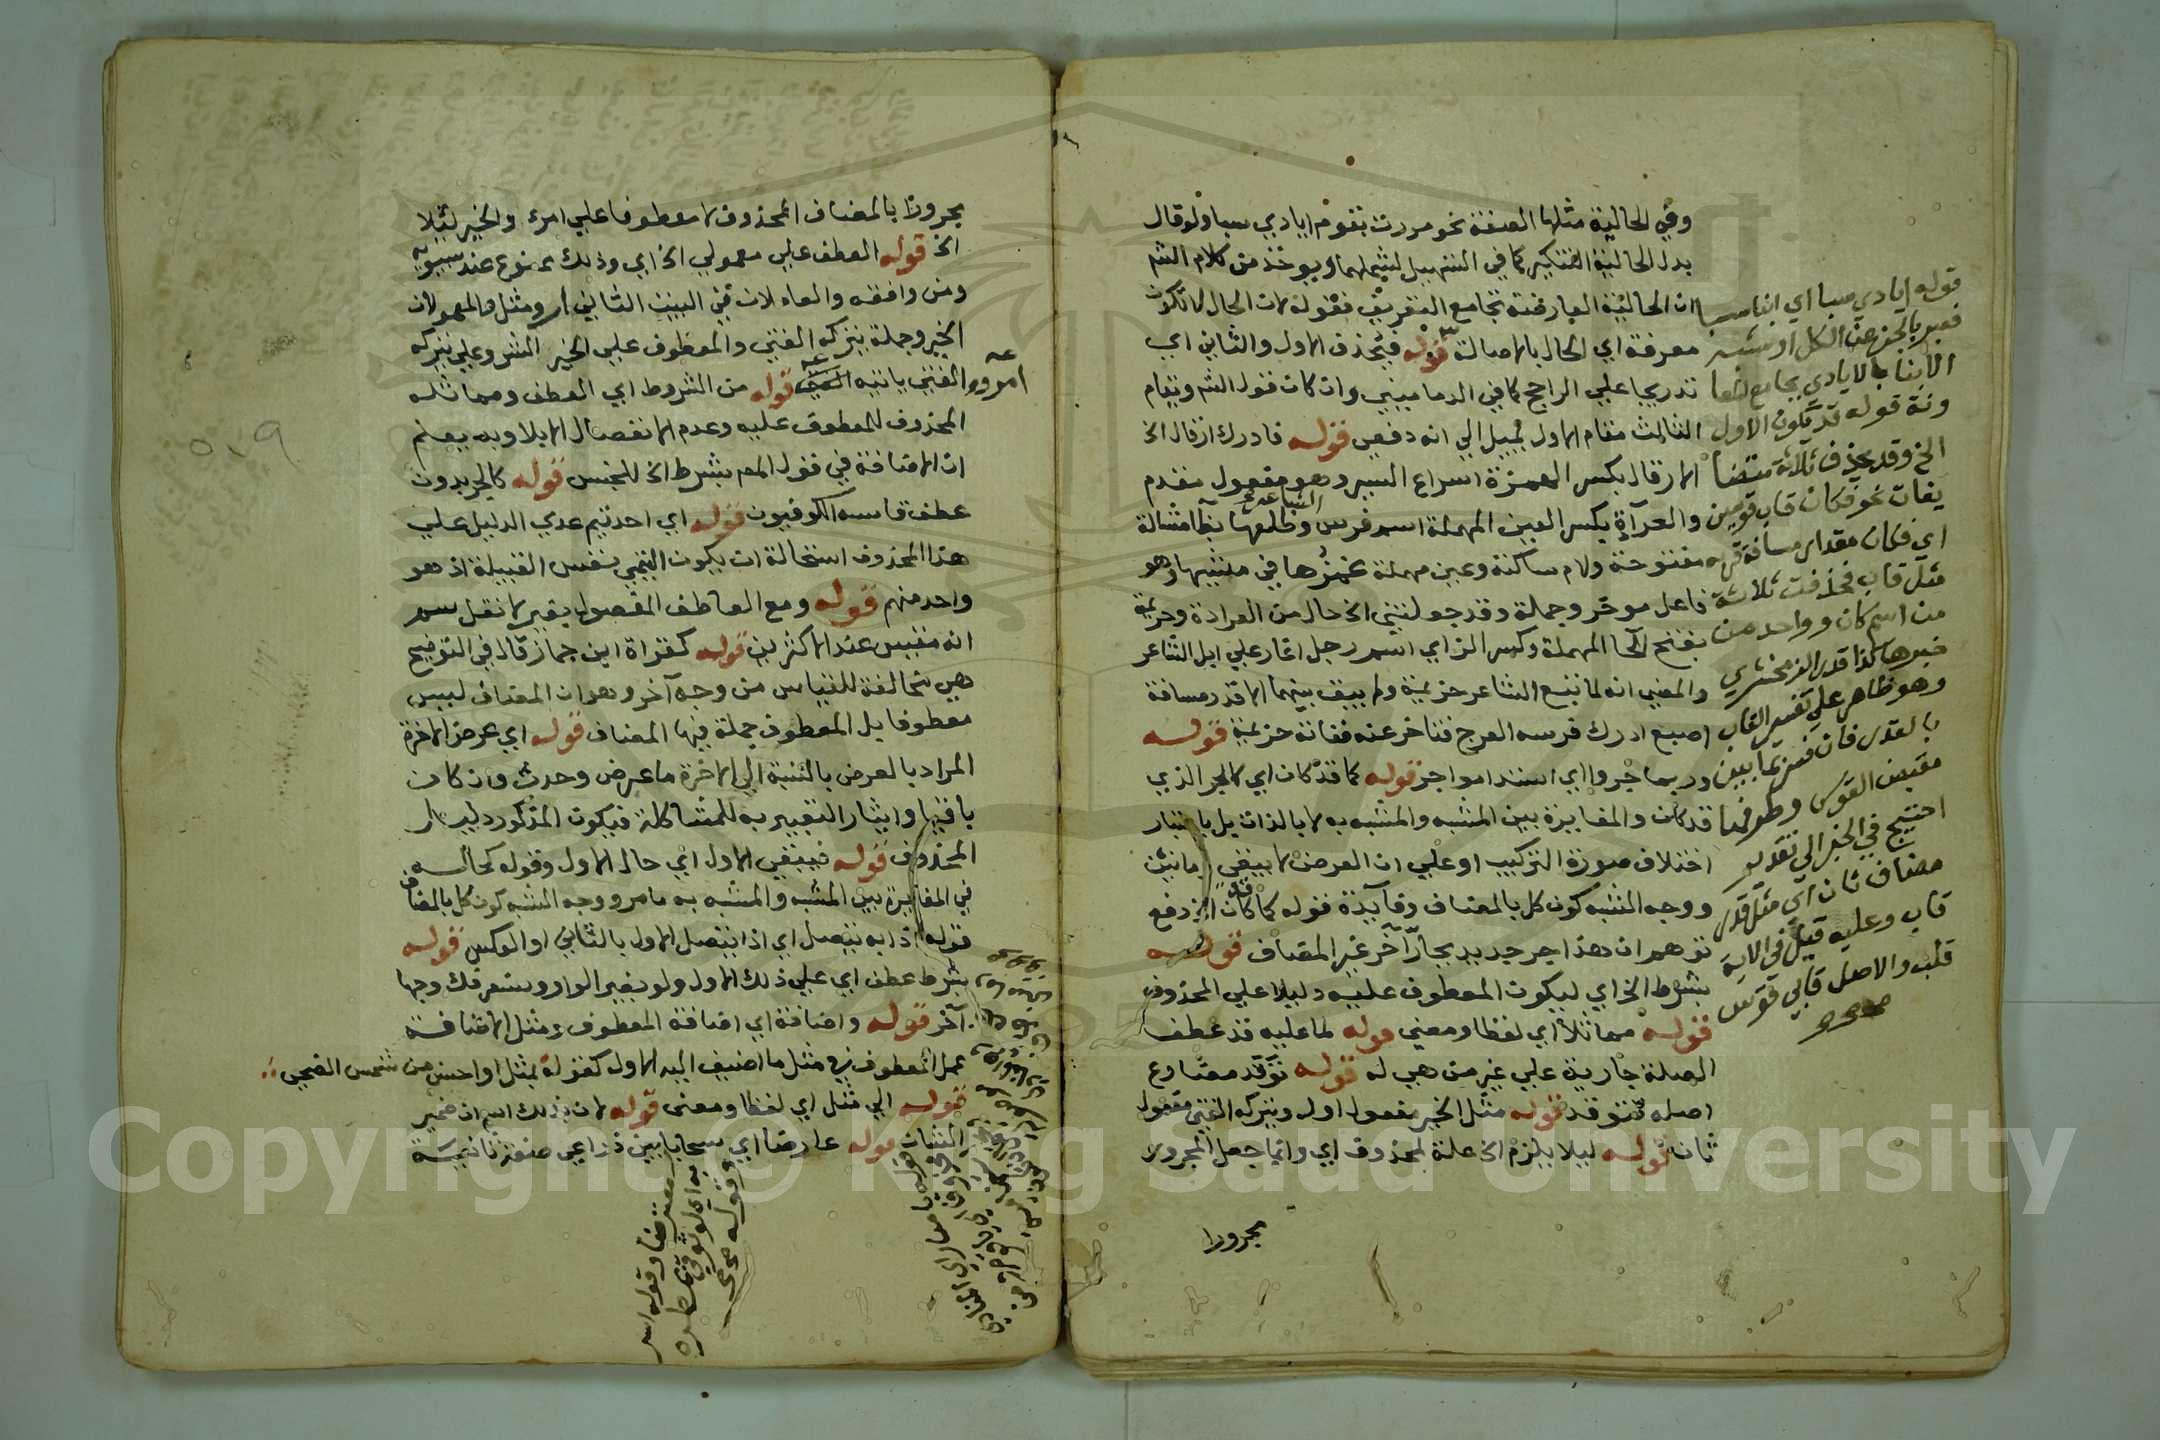 وفي الحالية مثلها الصفة نحو مررت بقوم ايادي سبا ولو قال
بدل الحالية التنكير كما في التسهيل لشملهما ويوخذ من كلام الشم
ان الحالية العارضة تجامع التعريف فقوله لان الحال لا تكون
معرفة اي الحال بالاصالة قوله فيحذف الاول والثاني اي
تدريجا علي الراجح كما في الدماميني وان كان قول الشم ويقام
الثالث مقام الاول يميل الي انه دفعي قوله فادرك ارقال الخ
الارقال بكسر الهمزة اسراع السير وهو مفعول مقدم
والعرادة بكسر العين المهملة اسم فرس وظلعها بظا مشالة
مفتوحة ولام ساكنة وعين مهملة غمزها في مشيها وهو
فاعل موخر وجملة وقد جعلتني الخ حال من العرادة وحزيمة
بفتح الحا المهملة وكسر الزاي اسم رجل اغار علي ابل الشاعر
والمعني انه لما تبع الشاعر حزيمة ولم يبق بينهما الا قدر مسافة
اصبع ادرك فرسه العرج فتاخر عنه ففاته حزيمة قوله
وربما جروا اي استداموا جر قوله كما قد كان اي كالجر الذي
قد كان والمغايرة بين المشبه والمشبه به لا بالذات بل باعتبار
اختلاف صورة التركيب او علي ان العرض لا يبقي زمانين
ووجه الشبه كون كل بالمضاف وفايدة قوله كما كان الخ دفع
توهم ان هذا جر جديد بجار آخر غير المضاف قوله
بشرط الخ اي ليكون المعطوف عليه دليلا علي المحذوف
قوله مماثلا اي لفظا ومعني قوله لما عليه قد عطف
الصلة جارية علي غير من هي له قوله توقد مضارع
اصله تتوقد قوله مثل الخير مفعول اول ويتركه الفتي مفعول
ثان قوله ليلا يلزم الخ علة لمحذوف اي وانما جعل المجرور
مجرورا
قوله ايادي سبا اي ابنا سبا
فعبر بالجزء عن الكل او شبه
الابنا بالايادي بجامع
قوله قد يكون الاول
الخ وقد يحذف ثلاثة متضا
يفات نحو فكان قاب قوسين
اي فكان مقدار مسافة قربه
مثل قاب فحذفت ثلاثة
من اسم كان وواحد من
خبرها كذا قدر الزمخشري
وهو ظاهر علي تفسير القاب
بالقدر فان فسر بما بين
مقبض القوس وطرفها
احتيج في الخبر الي تقدير
مضاف ثان اي مثل قدر
قاب وعليه قيل في الاية
قلب والاصل قابي قوس
مجرورا بالمضاف المحذوف لا معطوفا علي امرء والخبر ليلا
الخ قوله العطف علي معمولي الخ اي وذلك ممنوع عند سيبويه
ومن وافقه والعاملان في البيت الثاني ار ومثل والمعمولان
الخير وجملة يتركه الفتي والمعطوف علي الخير الشر وعلي يتركه
الفتي ياتيه قوله من الشروط اي العطف ومماثلة
المحذوف للمعطوف عليه وعدم الانفصال الا بلا وبه يعلم
ان الاضافة في قول المص بشرط الخ للجنس قوله كالجر بدون
عطف قاسه الكوفيون قوله اي احد تيم عدي الدليل علي
هذا المحذوف استحالة ان يكون التيمي نفس القبيلة اذ هو
واحد منهم قوله ومع العاطف المفصول بغير لا نقل سم
انه مقيس عند الاكثرين قوله كقراة ابن جماز قال في التوضيح
هي مخالفة للقياس من وجه آخر وهو ان المضاف ليس
معطوفا بل المعطوف جملة فيها المضاف قوله اي عرض الاخرة
المراد بالعرض بالنسبة الي الاخرة ما عرض وحدث وان كان
باقيا وايثار التعبير به للمشاكلة فيكون المذكور دليل
المحذوف قوله فيبقي الاول اي حال الاول وقوله كحاله
في المغايرة بين المشبه والمشبه به ما مر ووجه الشبه كون كل بالمضاف
قوله اذا به يتصل اي اذا يتصل الاول بالثاني او العكس قوله
بشرط عطف اي علي ذلك الاول ولو بغير الواو وستعرفك وجها
آخر قوله واضافة اي اضافة المعطوف ومثل الاضافة
عمل المعطوف في مثل ما اضيف اليه الاول كقوله بمثل او احسن من شمس الضحي
قوله الي مثل اي لفظا ومعني قوله لان بذلك اسم ان ضمير
الشان قوله عارضا اي سحابا بين ذراعي صفة ثانية